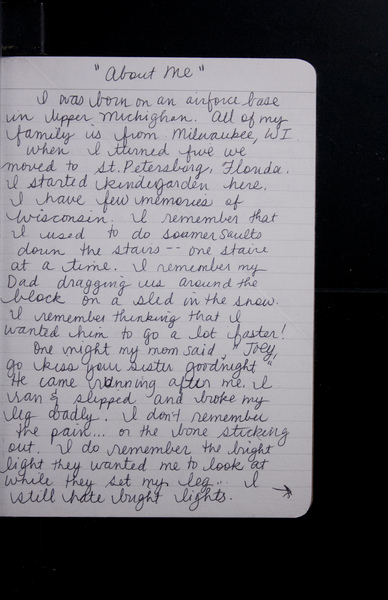 "About Me"
I was born on an airforce base
in Upper Michighan. All of my
family is from Milwaukee, WI
when I turned five we
moved to St. Petersburg, Florida.
I started kindegarden here.
I have few memories of
Wisconsin. I remember that
I used to do soamersaults
down the stairs -- one staire
at a time. I remember my
Dad dragging us around the
block on a sled in the snow.
I remember thinking that I
wanted him to go a lot faster!
One night my mom said, "Joey,
go kiss your sister goodnight"
He came running after me. I
ran & slipped and broke my
leg badly. I don't remember
the pain... or the bone sticking
out. I do remember the bright
light they wanted me to look at
while they set my leg... I
still hate bright lights. →